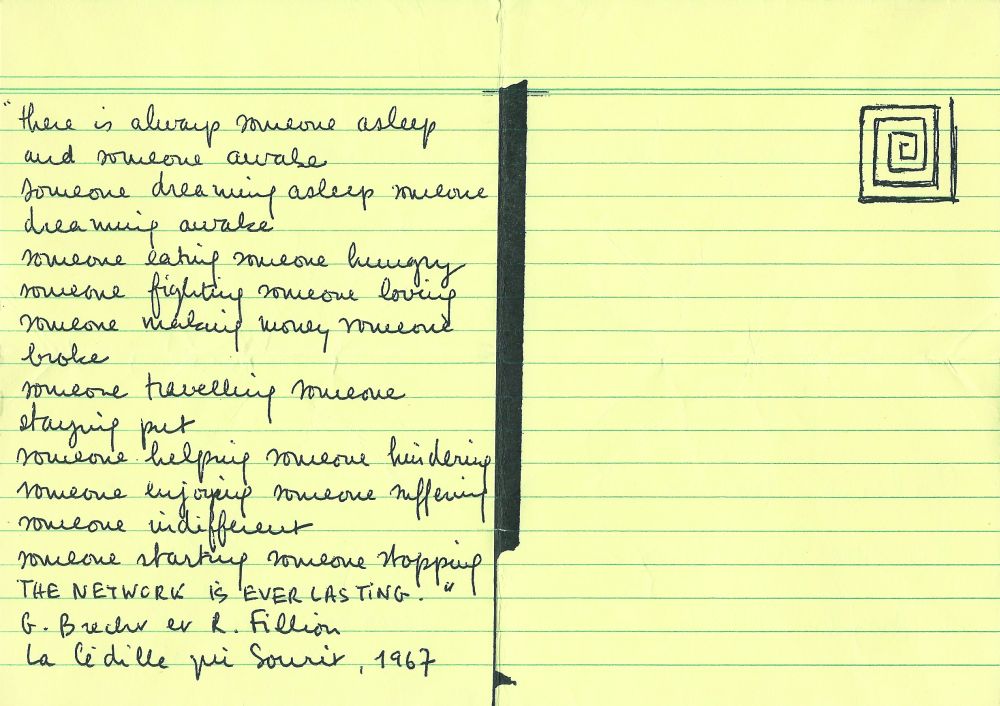 "there is always someone asleep
and someone awake
someone dreaming asleep someone
dreaming awake
someone eating someone hungry
someone fighting someone loving
someone making money someone
broke
someone travelling someone
staying put
someone helping someone hindering
someone enjoying someone suffering
someone indifferent
someone starting someone stopping
THE NETWORK IS EVERLASTING."
G. Brecht et R. Fillion
La Cédille qui Sourit, 1967